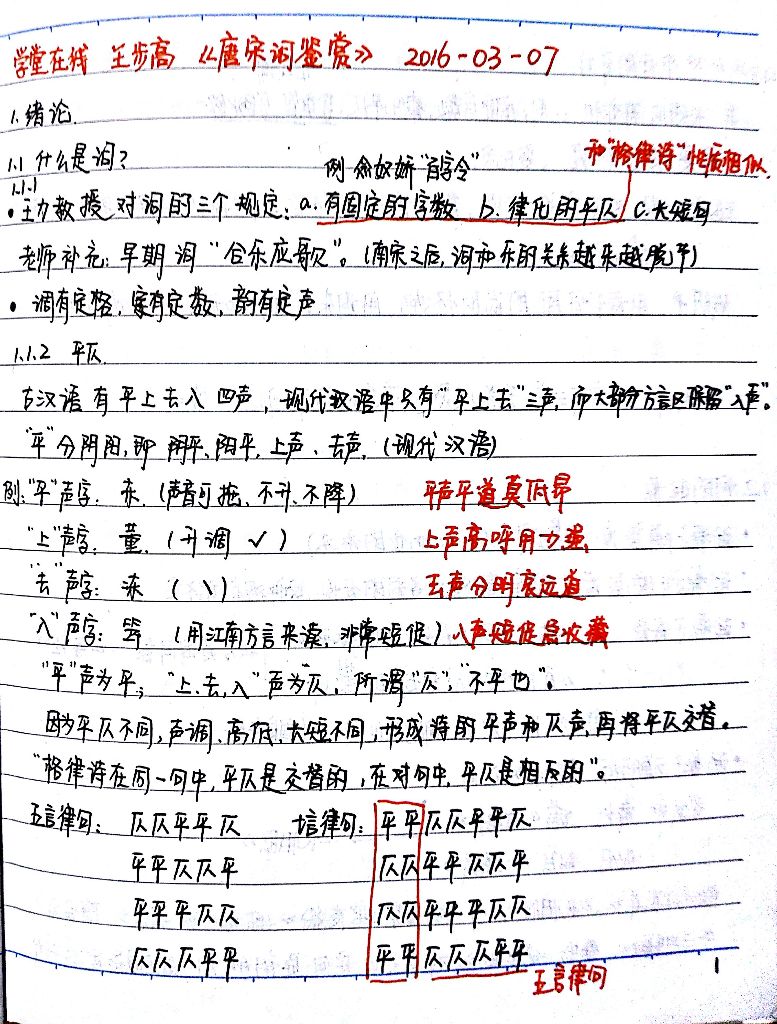 学堂在线 王步高 《唐宋词鉴赏》 2016-03-07
1.绪论
1.1 什么是词?
例 念奴娇"百字令"
和"格律诗"性质相似.
1.1.1
• 王力教授对词的三个规定: a.有固定的字数 b.律化的平仄 c.长短句
老师补充: 早期词"合乐应歌"。(南宋之后,词和乐的关系越来越脱节)
• 调有定格,字有定数,韵有定声
1.1.2 平仄
古汉语有平上去入四声,现代汉语中只有"平上去"三声,而大部分方言区保留"入声"。
"平"分阴阳,即阴平、阳平、上声、去声,(现代汉语)
例:"平"声字: 东.(声音可拖、不升、不降) 平声平道莫低昂
"上"声字: 董.(升调 ✓) 上声高呼用力强
"去"声字: 冻 (\) 去声分明哀远道
"入"声字: 笃 (用江南方言来读,非常短促) 入声短促急收藏
"平"声为平; "上、去、入"声为仄. 所谓"仄","不平也"。
因为平仄不同,声调、高低、长短不同,形成诗的平声和仄声,再将平仄交替。
"格律诗在同一句中,平仄是交替的,在对句中,平仄是相反的"。
五言律句: 仄仄平平仄 七言律句: 平平仄仄平平仄
平平仄仄平 仄仄平平仄仄平
平平平仄仄 仄仄平平平仄仄
仄仄仄平平 平平仄仄仄平平
五言律句
1